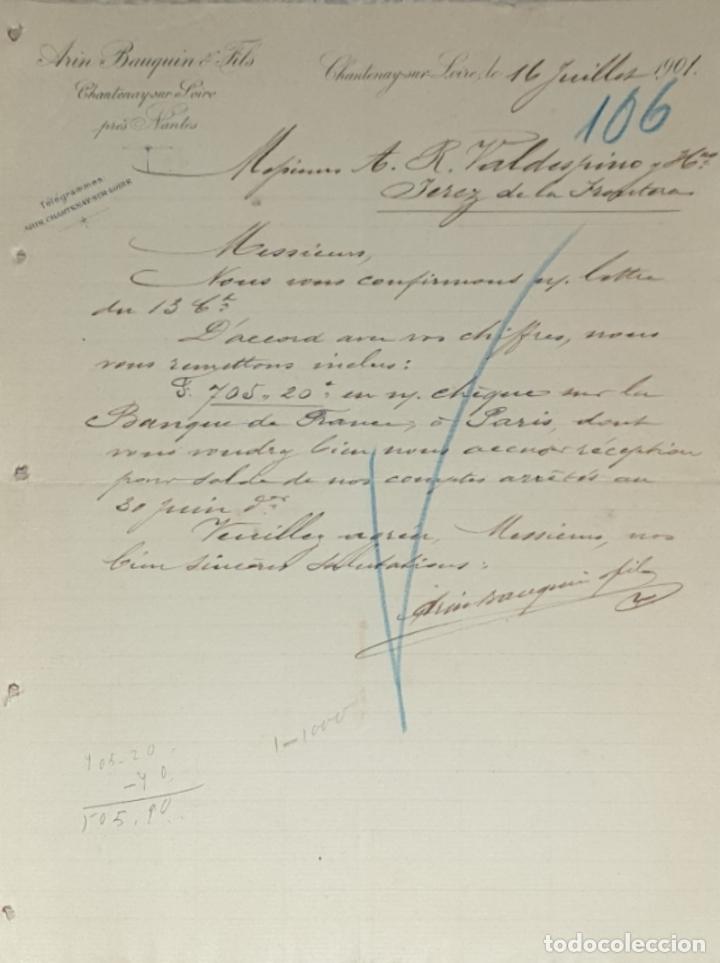 Arin Bauquin & Fils
Chantenay-sur-Loire
près Nantes
Télégrammes:
ARIN, CHANTENAY-SUR-LOIRE
Chantenay-sur-Loire, le 16 Juillet 1901.
106
Messieurs A. R. Valdespino y Hno
Jerez de la Frontera
Messieurs,
Nous vous confirmons n/. lettre
du 13 Ct.
D'accord avec vos chiffres, nous
vous remettons inclus:
F. 705.20 en n/. chèque sur la
Banque de France, à Paris, dont
vous voudrez bien nous accuser réception
pour solde de nos comptes arrêtés au
30 juin der
Veuillez agréer, Messieurs, nos
bien sincères salutations:
Arin Bauquin fils
1-1000
705-20
-70
705.90
todocoleccion